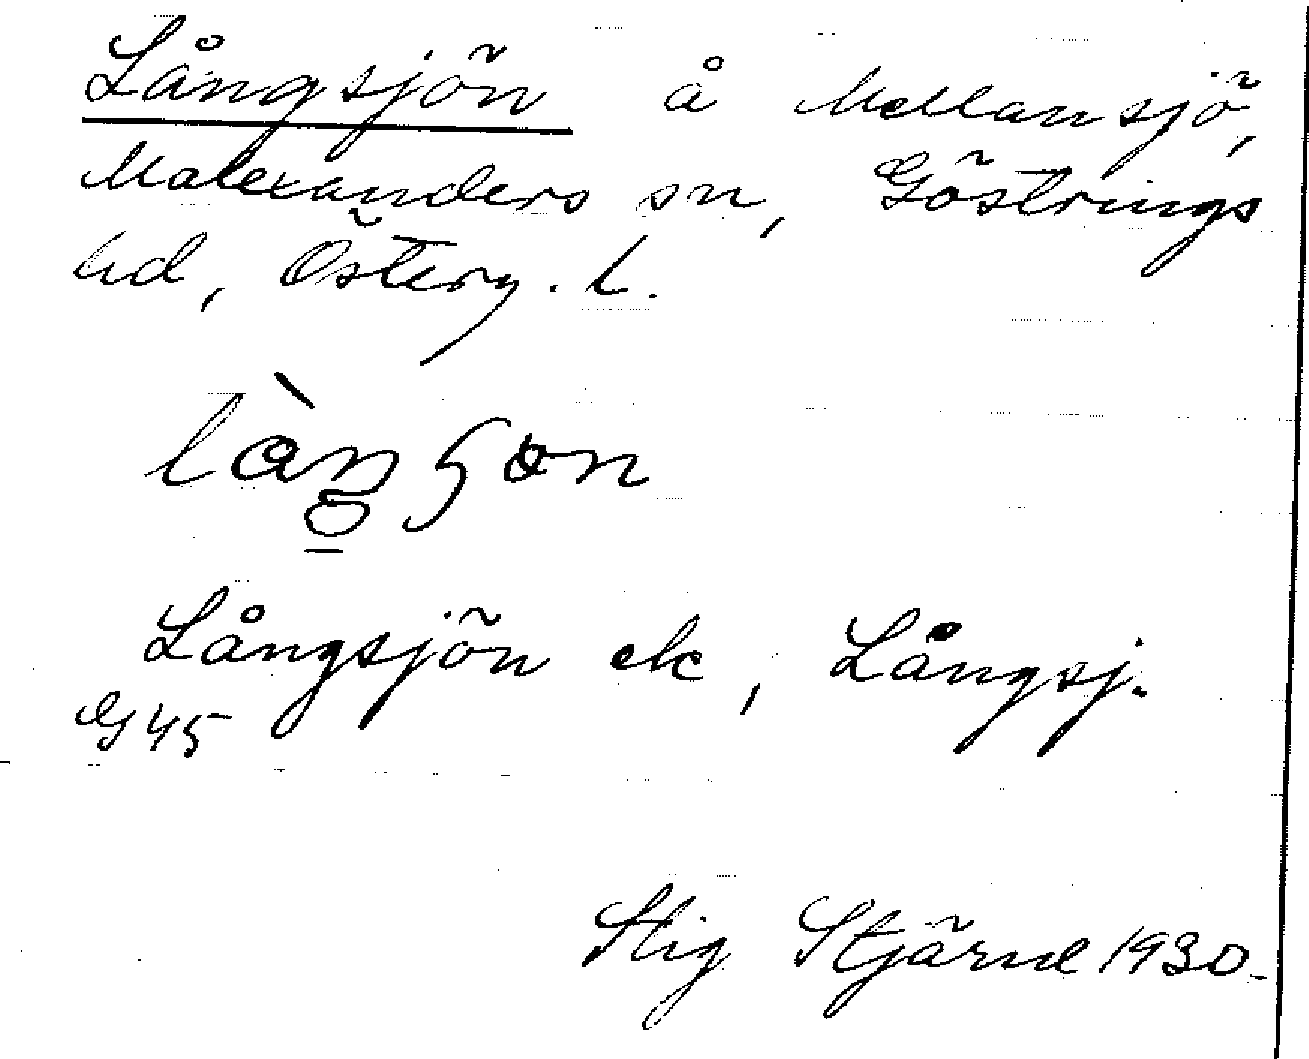 Långsjön å Mellansjö,
Malexanders sn, Göstrings
hd, Österg. l.
Långsjön ek, Långsj.
G 45
Stig Stjärne 1930